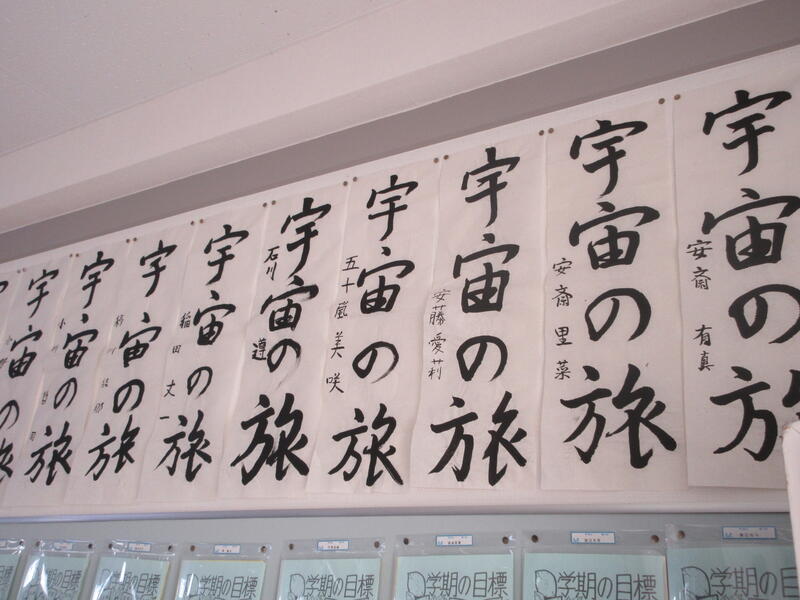 宇宙の旅
安斎 有真
宇宙の旅
安斎 里菜
宇宙の旅
安藤愛莉
宇宙の旅
五十嵐美咲
宇宙の旅
石川 遵
宇宙の旅
稲田 丈一
宇宙の旅
宇宙の旅
宇宙の旅
学期の目標
学期の目標
学期の目標
学期の目標
学期の目標
学期の目標
学期の目標